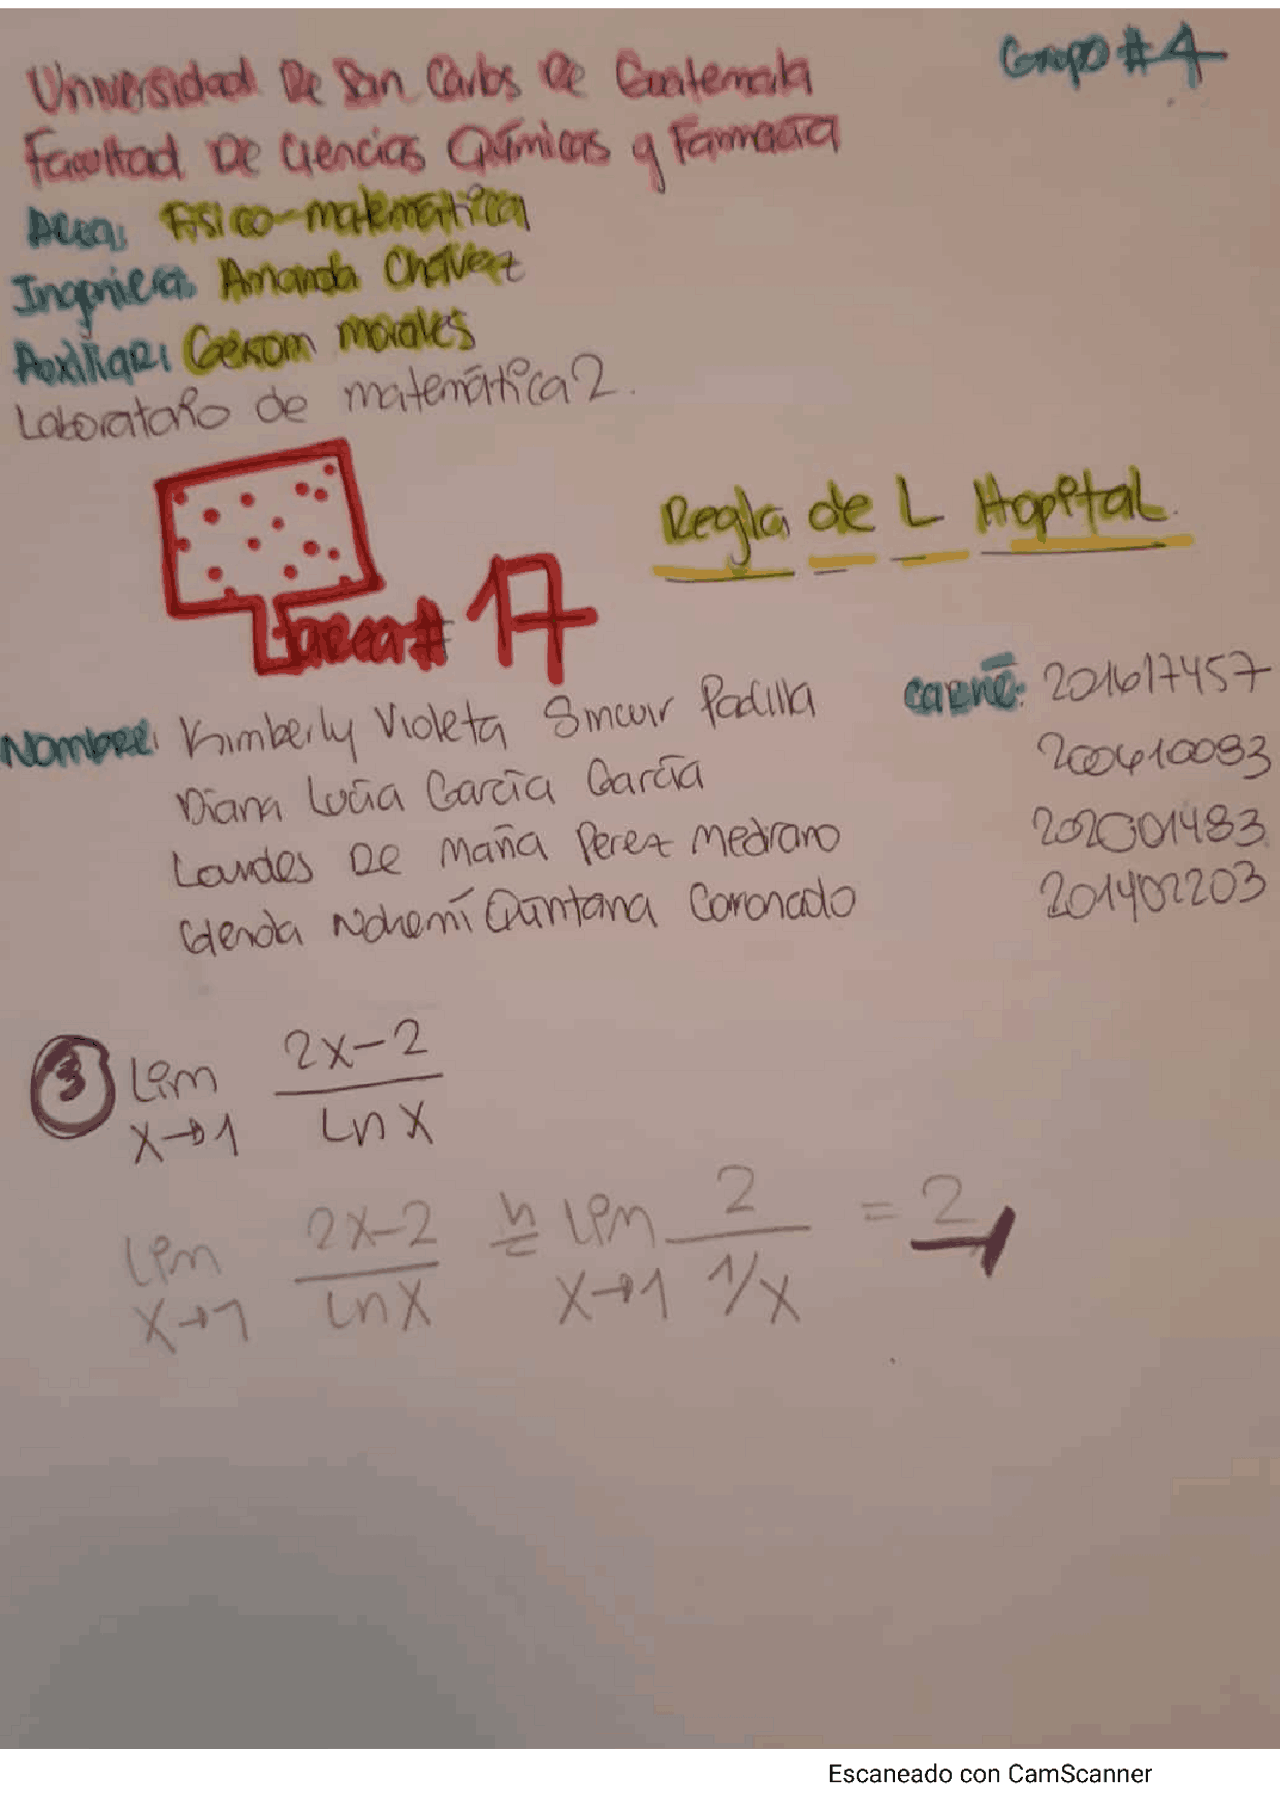 Grupo #4
Universidad De San Carlos De Guatemala
Facultad De Ciencias Químicas y Farmacia
Area: Físico-matemática
Ingeniera: Amanda Chávez
Auxiliar: Gerson morales
Laboratorio de matemática 2.
Regla de L Hopital.
tarea# 17
Nombre: Kimberly Violeta Padilla carné: 201617457
Diana Lucía García García 200610083
Lourdes De María Perez Medrano 202001483
Glenda Nohemí Quintana Coronado 201402203
3 Lim 2x-2
x→1 Ln x
Lim 2x-2 h= Lim 2 = 2
x→1 Ln x x→1 1/x
Escaneado con CamScanner